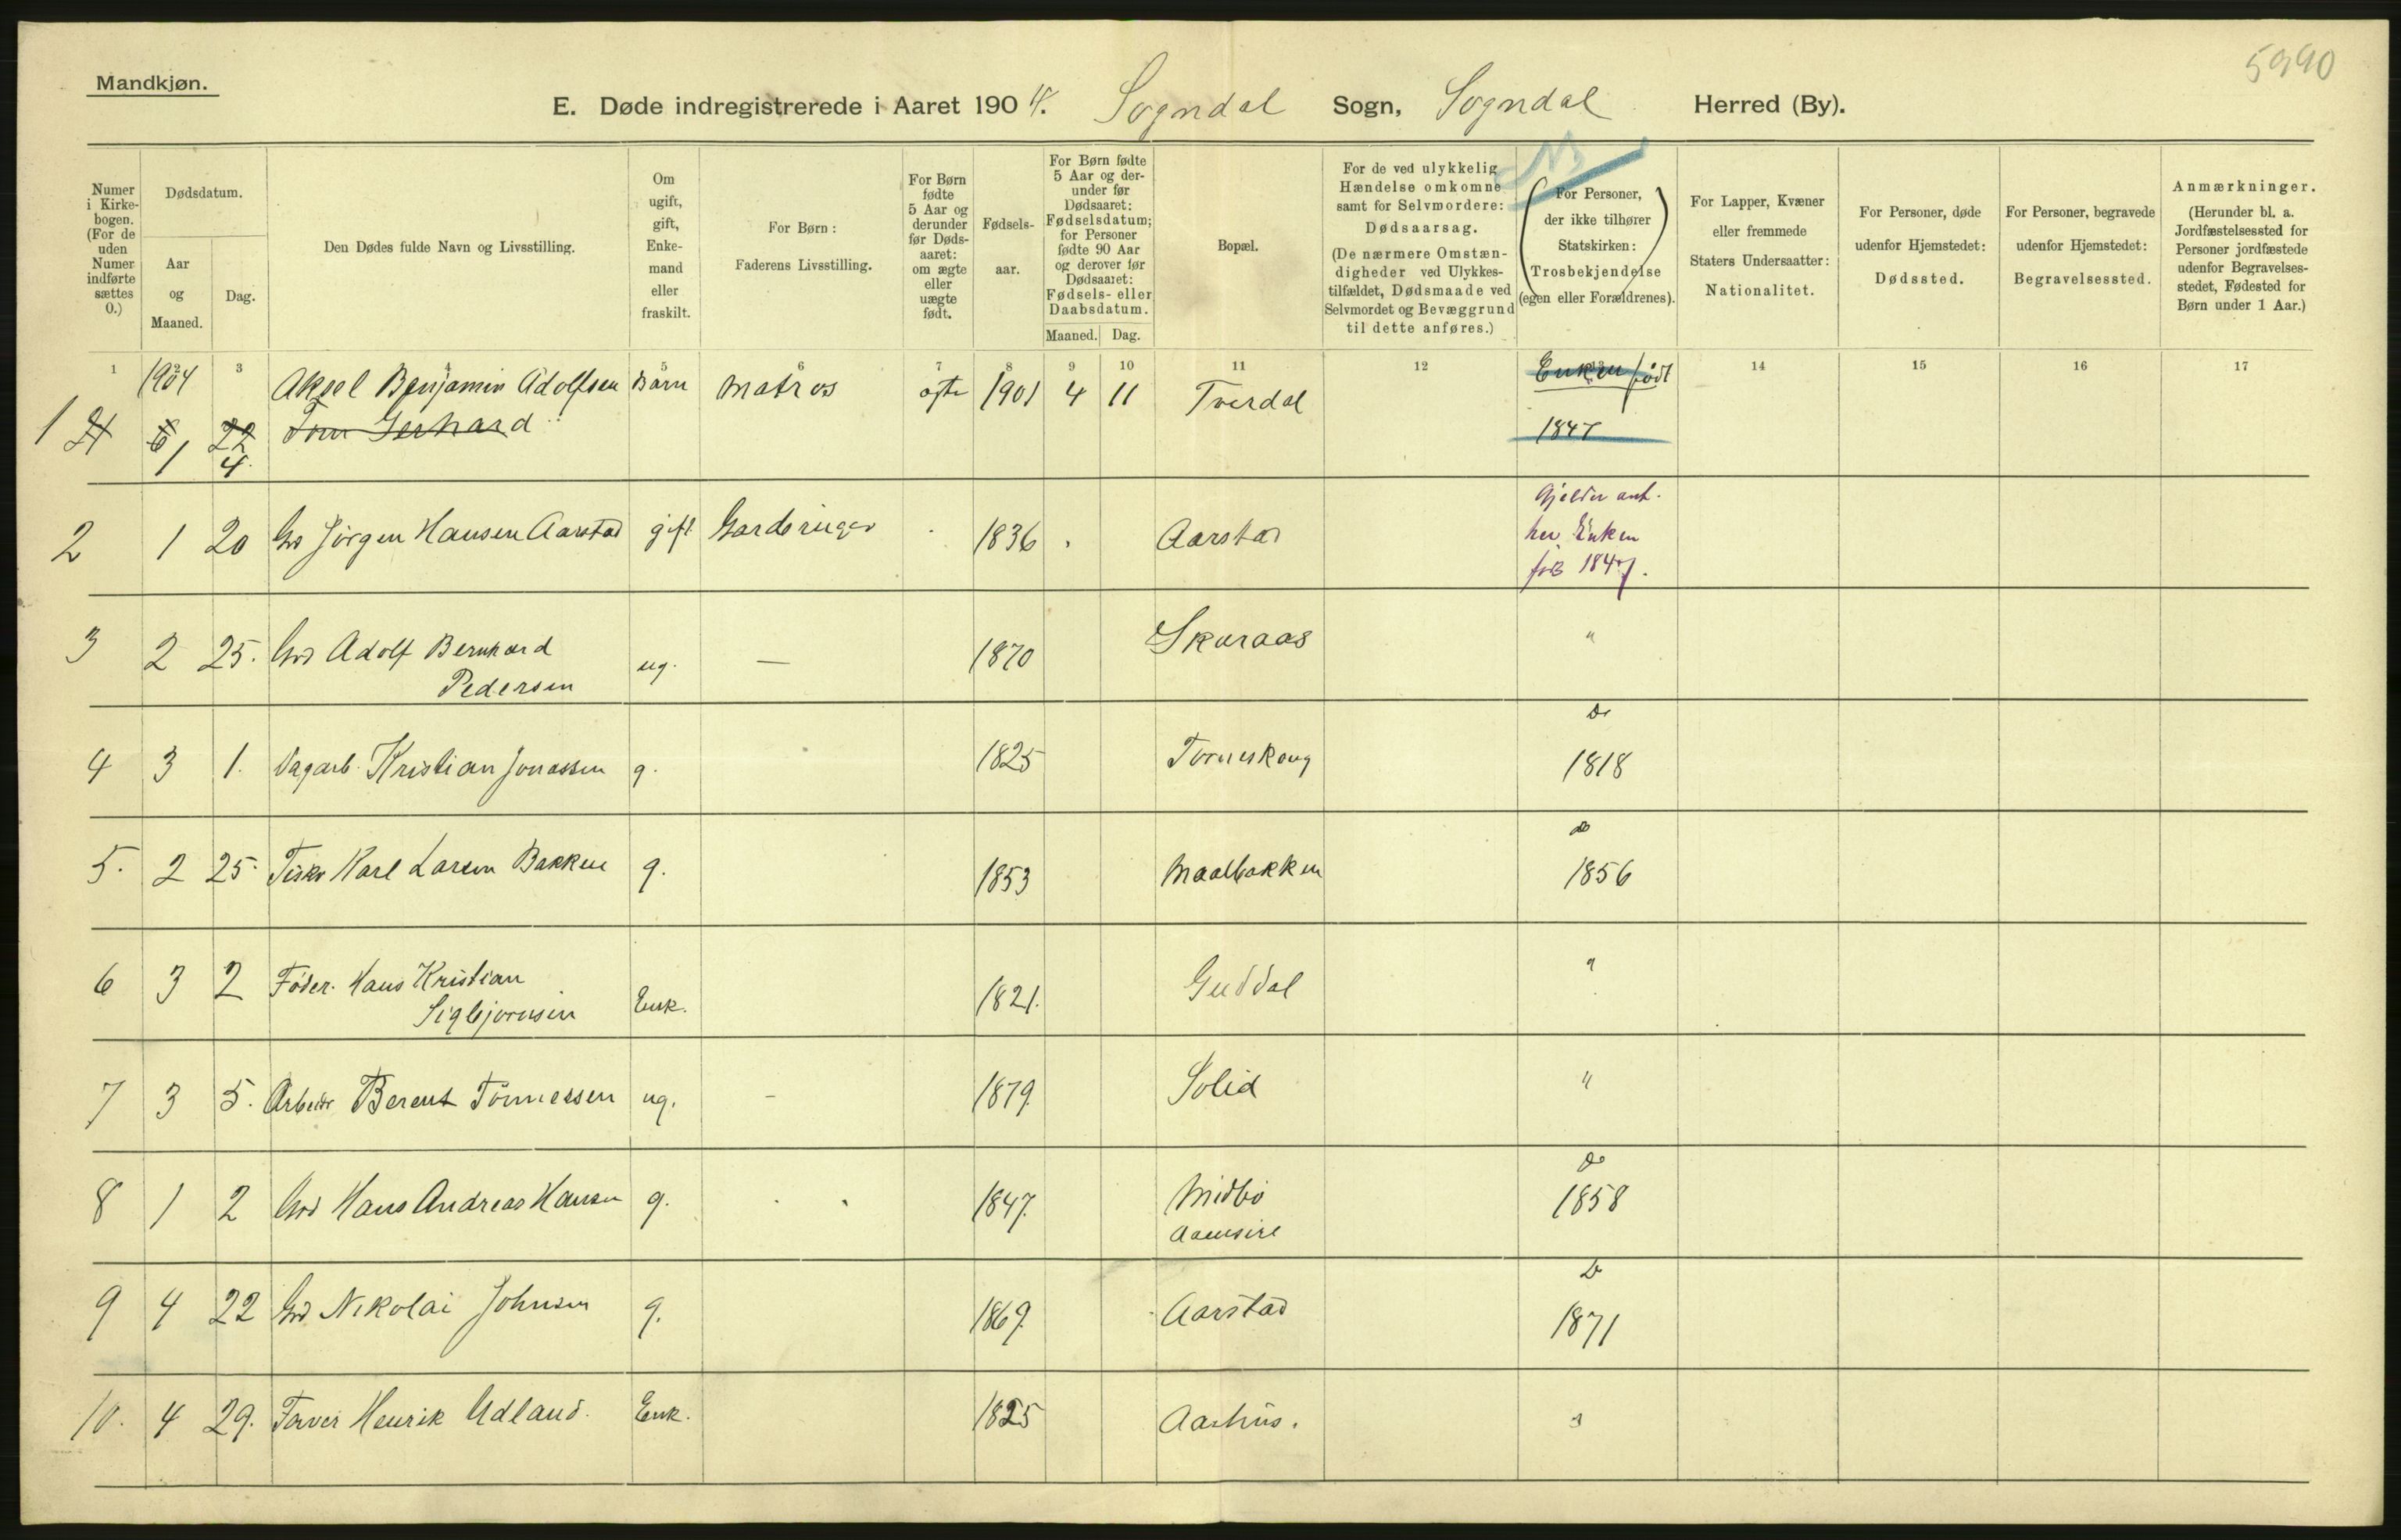 5990
Mandkjøn.
E. Døde indregistrerede i Aaret 1904. Sogndal Sogn, Sogndal Herred (By).
Numer i Kirkebogen. (For de uden Numer indførte sættes 0.)
Dødsdatum.
Aar og Maaned.
Dag.
Den Dødes fulde Navn og Livsstilling.
Om ugift, gift, Enkemand eller fraskilt.
For Børn: Faderens Livsstilling.
For Børn fødte 5 Aar og derunder før Dødsaaret: om ægte eller uægte født.
Fødselsaar.
For Børn fødte 5 Aar og derunder før Dødsaaret: Fødselsdatum; for Personer fødte 90 Aar og derover før Dødsaaret: Fødsels- eller Daabsdatum.
Maaned. Dag.
Bopæl.
For de ved ulykkelig Hændelse omkomne samt for Selvmordere: Dødsaarsag. (De nærmere Omstændigheder ved Ulykkestilfældet, Dødsmaade ved Selvmordet og Bevæggrund til dette anføres.)
NB
(For Personer, der ikke tilhører Statskirken:) Trosbekjendelse (egen eller Forældrenes).
For Lapper, Kvæner eller fremmede Staters Undersaatter: Nationalitet.
For Personer, døde udenfor Hjemstedet: Dødssted.
For Personer, begravede udenfor Hjemstedet: Begravelsessted.
Anmærkninger. (Herunder bl. a. Jordfæstelsessted for Personer jordfæstede udenfor Begravelsesstedet, Fødested for Børn under 1 Aar.)
1 2 3 4 5 6 7 8 9 10 11 12 13 14 15 16 17
1904 Aksel Benjamin Adolfsen Barn Matros ægte 1901 4 11 Tverdal Enken født
1 21 6 22 Tom Gerhard 1847
1 4.
2 1 20 Grd Jörgen Hansen Aarstad gift Gardbruger 1836 Aarstad Gjelder ant. her Enken föd 1847.
3 2 25. Grd Adolf Bernhard Pedersen ug. — 1870 Skaraas "
4 3 1. Dagarb. Kristian Jonassen g. 1825 Torneskoug Do 1818
5. 2 25. Fisker Karl Larsen Bakken g. 1853 Maalbakken do 1856
6 3 2 Föder. Hans Kristian Sigbjornsen Enk. 1821. Guddal "
7 3 5. Arbeider Berent Tönnessen ug. - 1879. Solid "
8 1 2 Grd Hans Andreas Hansen g. 1847. Midbö Aamsire Do 1858
9 4 22 Grd Nikolai Johnsen g. 1869. Aarstad Do 1871
10. 4 29. Farver Henrik Udland. Enk. 1825 Aashus. "